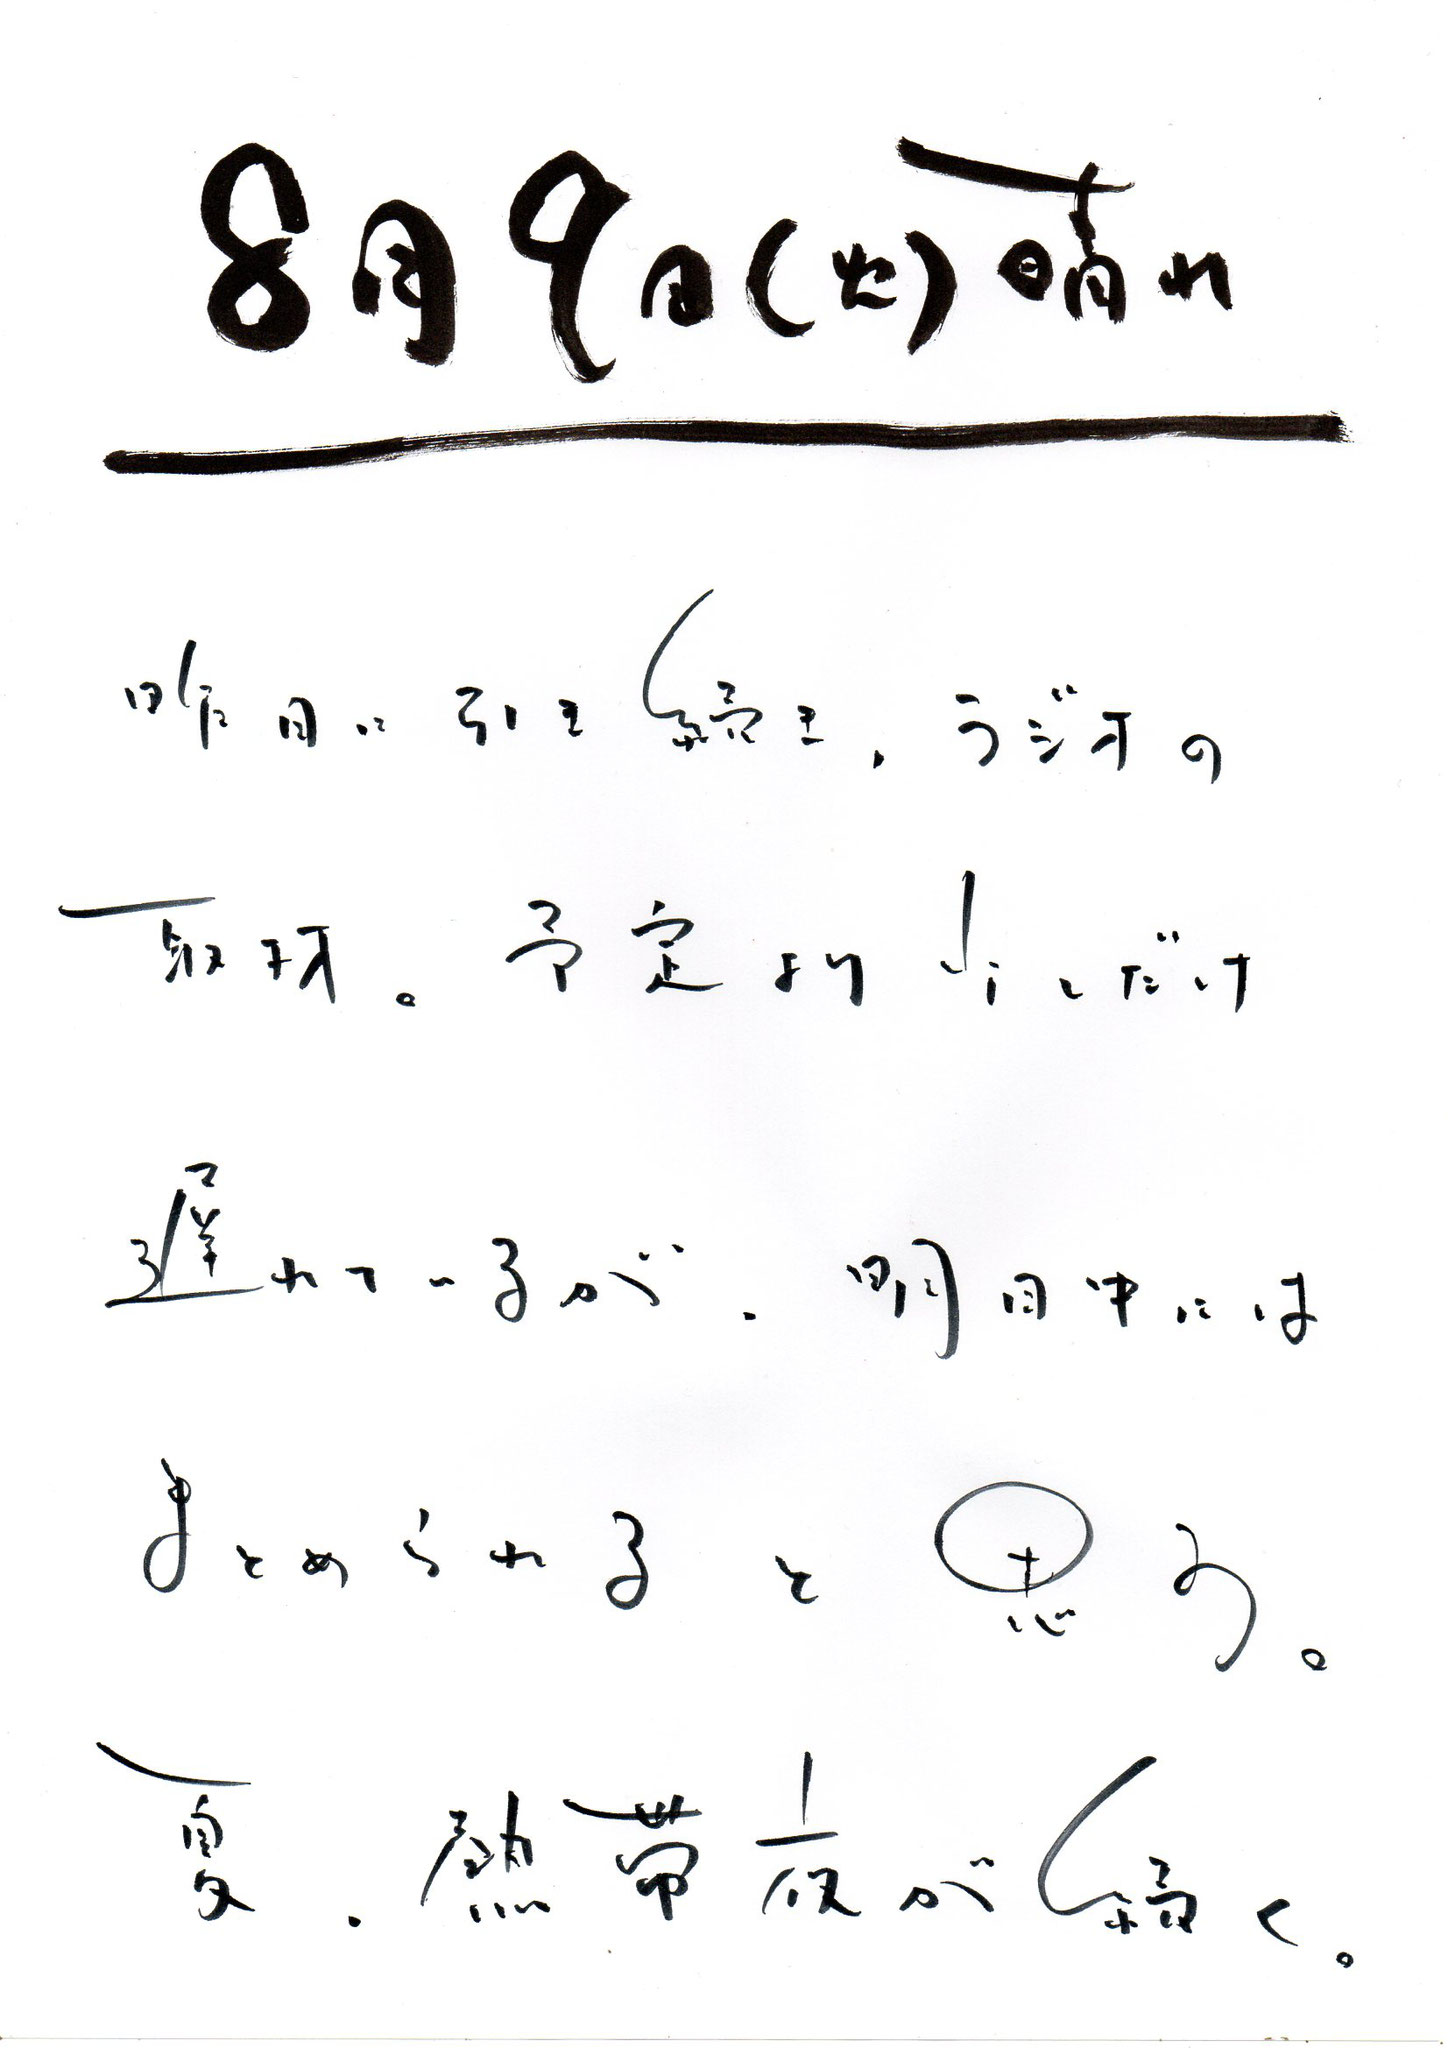 8月9日(火)晴れ
昨日に引き続き、ラジオの
取材。予定より少しだけ
遅れているが、明日中には
まとめられると思う。
夏、熱帯夜が続く。